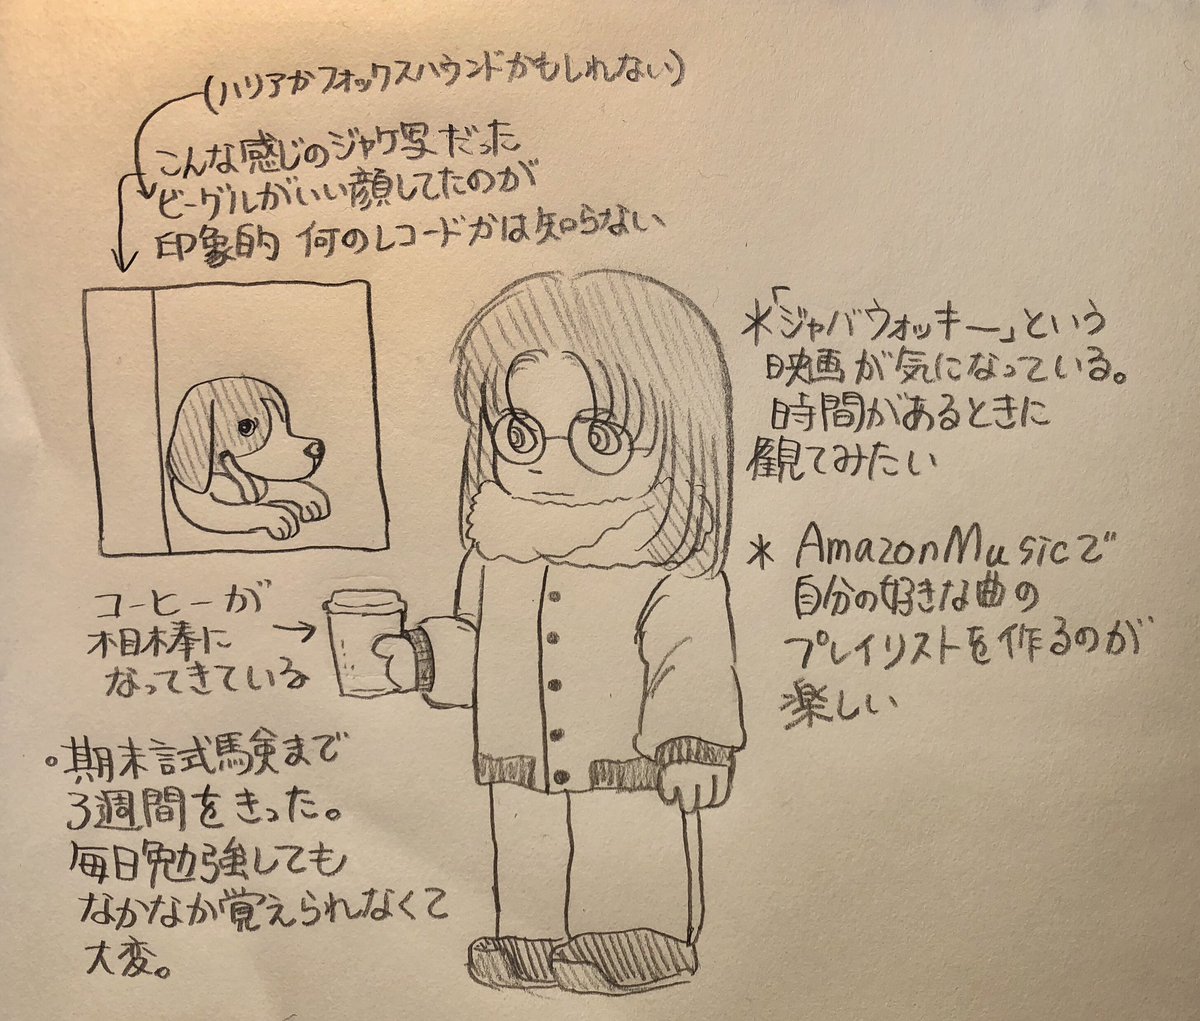 (ハリアかフォックスハウンドかもしれない)
こんな感じのジャケ写だった
ビーグルがいい顔してたのが
印象的 何のレコードかは知らない
*「ジャバウォッキー」という
映画が気になっている。
時間があるときに
観てみたい
* AmazonMusicで
自分の好きな曲の
プレイリストを作るのが
楽しい
コーヒーが
相棒に
なってきている
。期末試験まで
3週間をきった。
毎日勉強しても
なかなか覚えられなくて
大変。